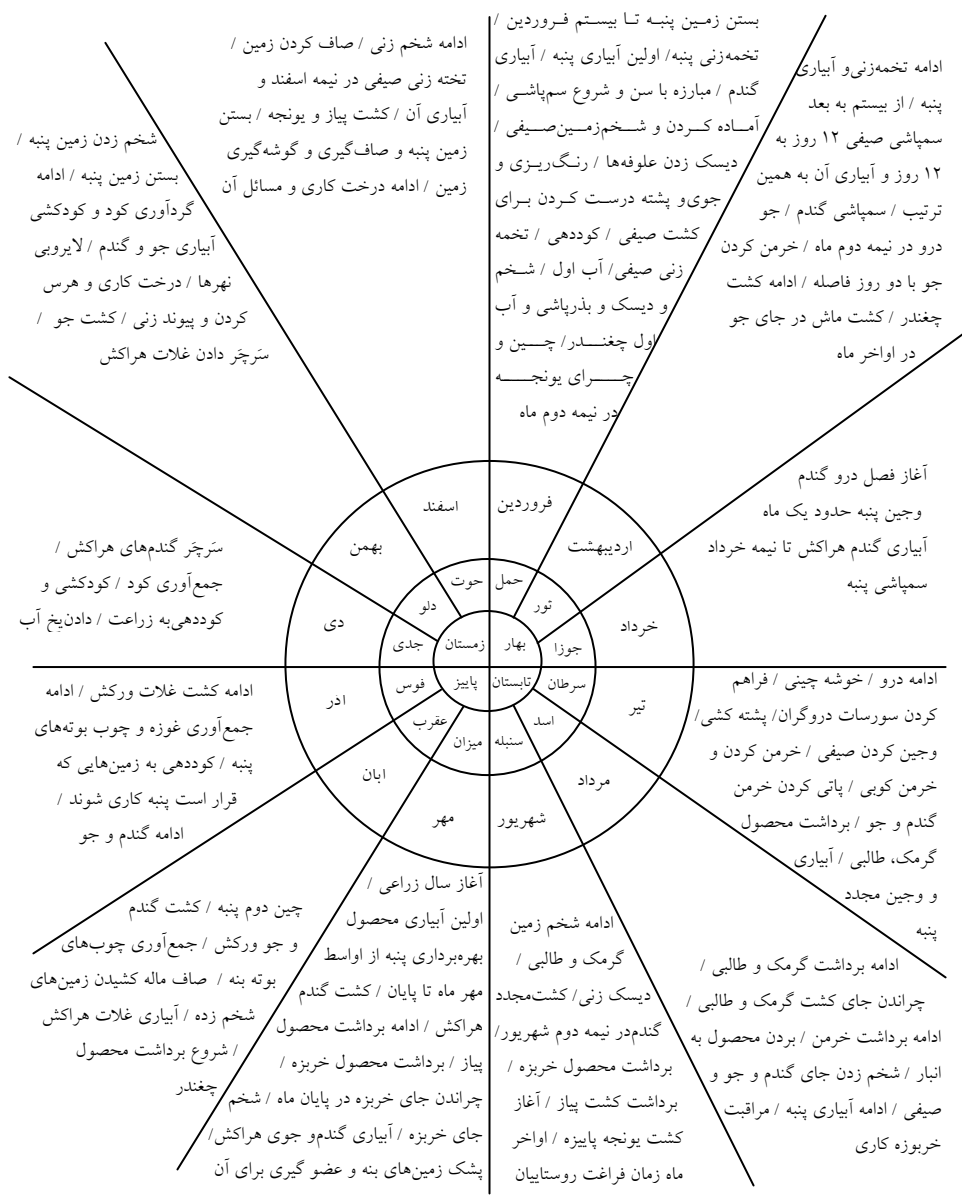 بستن زمین پنبه تا بیستم فروردین /
تخمه‌زنی پنبه/ اولین آبیاری پنبه / آبیاری
گندم / مبارزه با سن و شروع سم‌پاشی /
آماده کردن و شخم‌زمین‌صیفی /
دیسک زدن علوفه‌ها / رنگ‌ریزی و
جوی‌و پشته درست کردن برای
کشت صیفی / کوددهی / تخمه
زنی صیفی/ آب اول / شخم
و دیسک و بذرپاشی و آب
اول چغندر/ چین و
چرای یونجه
در نیمه دوم ماه
ادامه تخمه‌زنی‌و آبیاری
پنبه / از بیستم به بعد
سمپاشی صیفی ۱۲ روز به
۱۲ روز و آبیاری آن به همین
ترتیب / سمپاشی گندم / جو
درو در نیمه دوم ماه / خرمن کردن
جو با دو روز فاصله / ادامه کشت
چغندر / کشت ماش در جای جو
در اواخر ماه
آغاز فصل درو گندم
وجین پنبه حدود یک ماه
آبیاری گندم هراکش تا نیمه خرداد
سمپاشی پنبه
ادامه درو / خوشه چینی / فراهم
کردن سورسات دروگران/ پشته کشی/
وجین کردن صیفی / خرمن کردن و
خرمن کوبی / پاتی کردن خرمن
گندم و جو / برداشت محصول
گرمک، طالبی / آبیاری
و وجین مجدد
پنبه
ادامه برداشت گرمک و طالبی /
چراندن جای کشت گرمک و طالبی /
ادامه برداشت خرمن / بردن محصول به
انبار / شخم زدن جای گندم و جو و
صیفی / ادامه آبیاری پنبه / مراقبت
خربوزه کاری
ادامه شخم زمین
گرمک و طالبی /
دیسک زنی/ کشت‌مجدد
گندم‌در نیمه دوم شهریور/
برداشت محصول خربزه /
برداشت کشت پیاز / آغاز
کشت یونجه پاییزه / اواخر
ماه زمان فراغت روستاییان
آغاز سال زراعی /
اولین آبیاری محصول
بهره‌برداری پنبه از اواسط
مهر ماه تا پایان / کشت گندم
هراکش / ادامه برداشت محصول
پیاز / برداشت محصول خربزه /
چراندن جای خربزه در پایان ماه / شخم
جای خربزه / آبیاری گندم‌و جوی هراکش/
پشک زمین‌های بنه و عضو گیری برای آن
چین دوم پنبه / کشت گندم
و جو ورکش / جمع‌آوری چوب‌های
بوته بنه / صاف ماله کشیدن زمین‌های
شخم زده / آبیاری غلات هراکش
/ شروع برداشت محصول
چغندر
ادامه کشت غلات ورکش / ادامه
جمع‌آوری غوزه و چوب بوته‌های
پنبه / کوددهی به زمین‌هایی که
قرار است پنبه کاری شوند /
ادامه گندم و جو
سَرچَر گندم‌های هراکش /
جمع‌آوری کود / کودکشی و
کوددهی‌به زراعت / دادن‌یخ آب
شخم زدن زمین پنبه /
بستن زمین پنبه / ادامه
گردآوری کود و کودکشی
آبیاری جو و گندم / لایروبی
نهرها / درخت کاری و هرس
کردن و پیوند زنی / کشت جو /
سَرچَر دادن غلات هراکش
ادامه شخم زنی / صاف کردن زمین /
تخته زنی صیفی در نیمه اسفند و
آبیاری آن / کشت پیاز و یونجه / بستن
زمین پنبه و صاف‌گیری و گوشه‌گیری
زمین / ادامه درخت کاری و مسائل آن
فروردین
اردیبهشت
خرداد
تیر
مرداد
شهریور
مهر
ابان
اذر
دی
بهمن
اسفند
حمل
ثور
جوزا
سرطان
اسد
سنبله
میزان
عقرب
قوس
جدی
دلو
حوت
بهار
تابستان
پاییز
زمستان